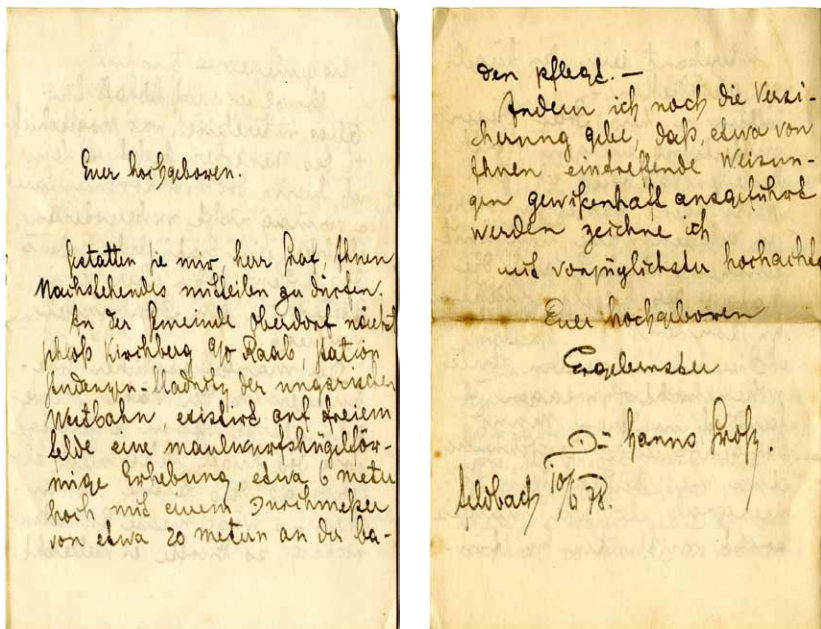 Euer Hochgeboren.
Gestatten sie mir, Herr Graf, Ihnen
Nachstehendes mitteilen zu dürfen.
In der Gemeinde Oberdorf nächst
schloß Kirchberg a/o Raab, station
der ungarischen
Westbahn, existirt auf freiem
felde eine maulwurfshügelför-
mige Erhebung, etwa 6 meter
hoch mit einem Durchmeßer
von etwa 20 metern an der ba-
den pflegt. —
Indem ich noch die Versi-
cherung gebe, daß, etwa von
Ihnen eintreffende Weisun-
gen gewißenhaft ausgeführt
werden zeichne ich
mit vorzüglichster hochachtg
Euer hochgeboren
Ergebenster
Dr Hanns Groß.
feldbach 10/6 78.